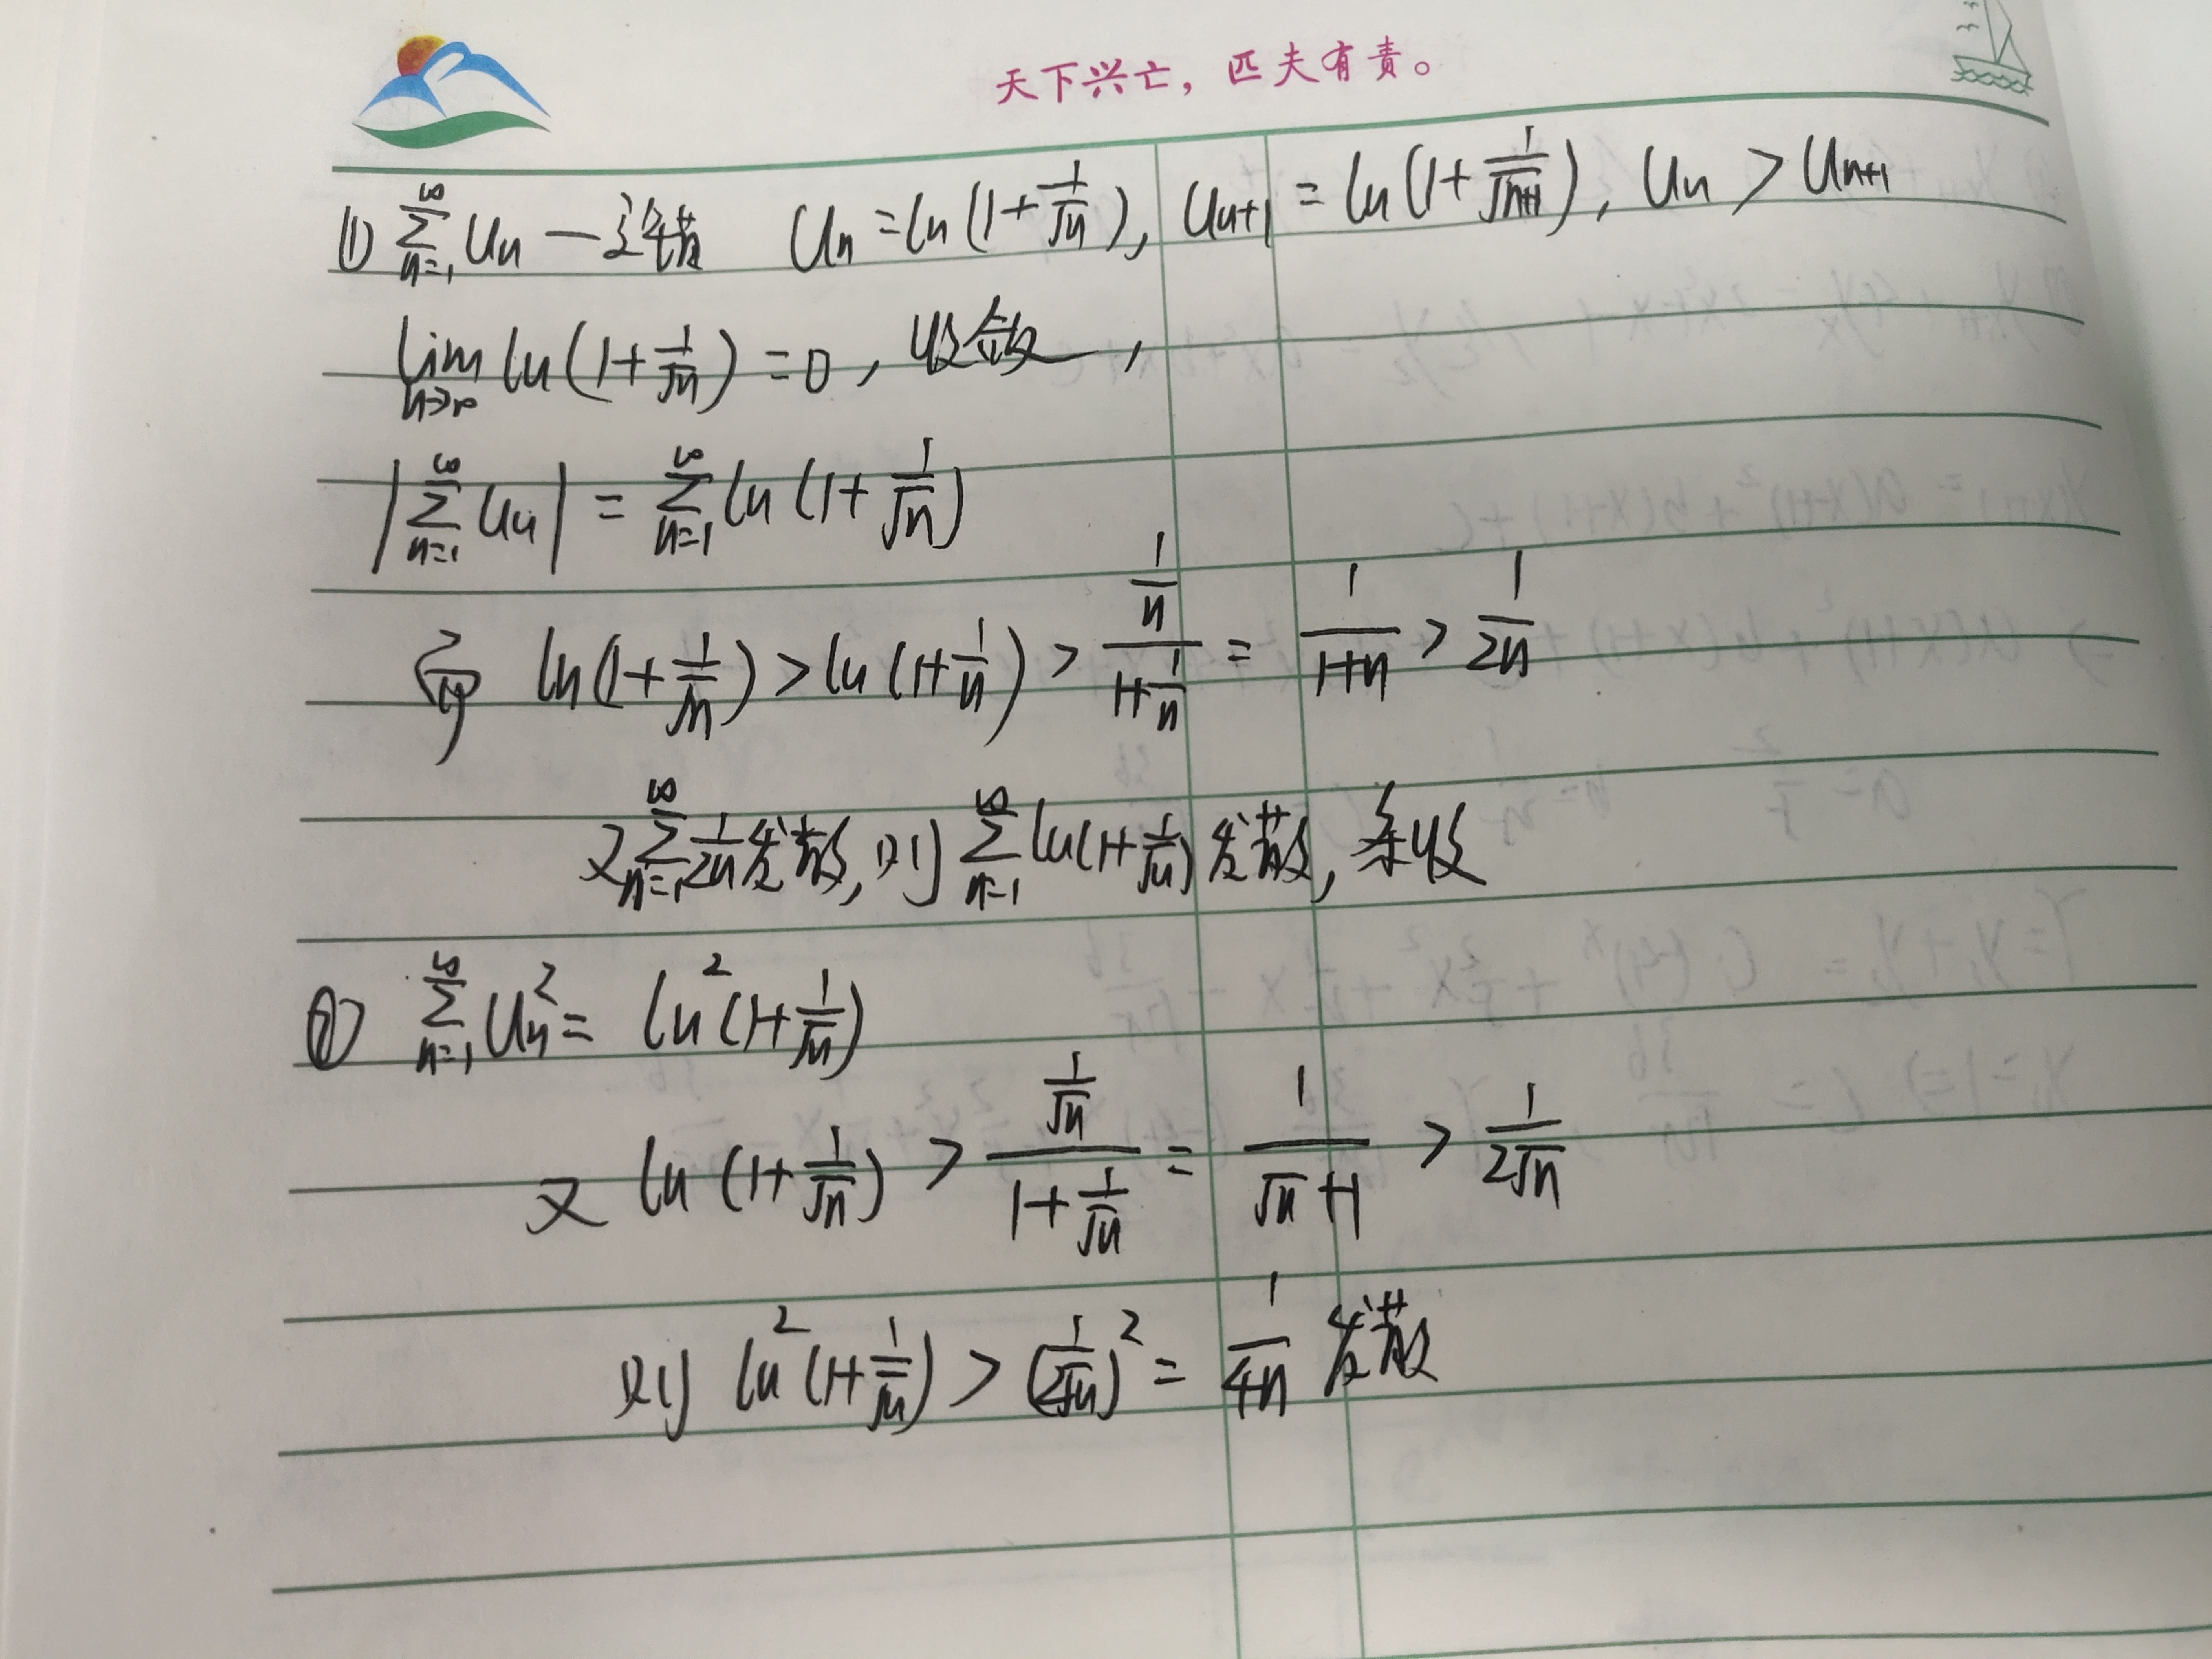 天下兴亡，匹夫有责。
(1) ∑_{n=1}^{∞} Un — 交错 Un = ln(1+1/√n), Un+1 = ln(1+1/√(n+1)), Un > Un+1
lim_{n→∞} ln(1+1/√n) = 0, 收敛,
|∑_{n=1}^{∞} Un| = ∑_{n=1}^{∞} ln(1+1/√n)
而 ln(1+1/√n) > ln(1+1/n) > (1/n)/(1+1/n) = 1/(1+n) > 1/2n
又∑_{n=1}^{∞} 1/2n 发散, 则 ∑_{n=1}^{∞} ln(1+1/√n) 发散, 条收
(2) ∑_{n=1}^{∞} Un² = ln²(1+1/√n)
又 ln(1+1/√n) > (1/√n)/(1+1/√n) = 1/(√n+1) > 1/(2√n)
则 ln²(1+1/√n) > (1/(2√n))² = 1/4n 发散